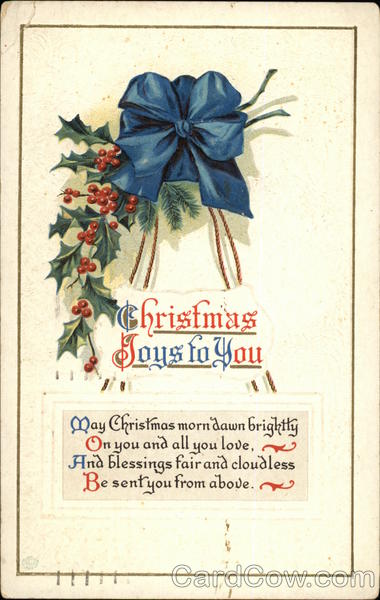 Christmas
Joys to You
May Christmas morn dawn brightly
On you and all you love,
And blessings fair and cloudless
Be sent you from above.
CardCow.com